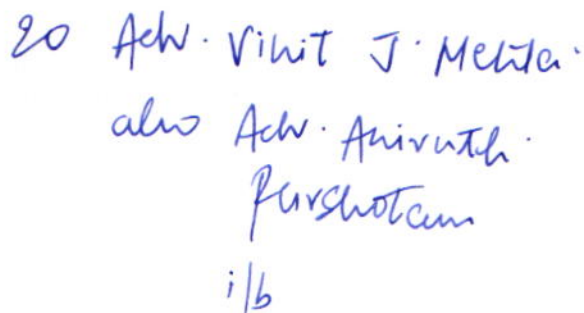 20 Adv. Vinit J. Mehta.
also Adv. Anirutdh.
Purshotam
i/b